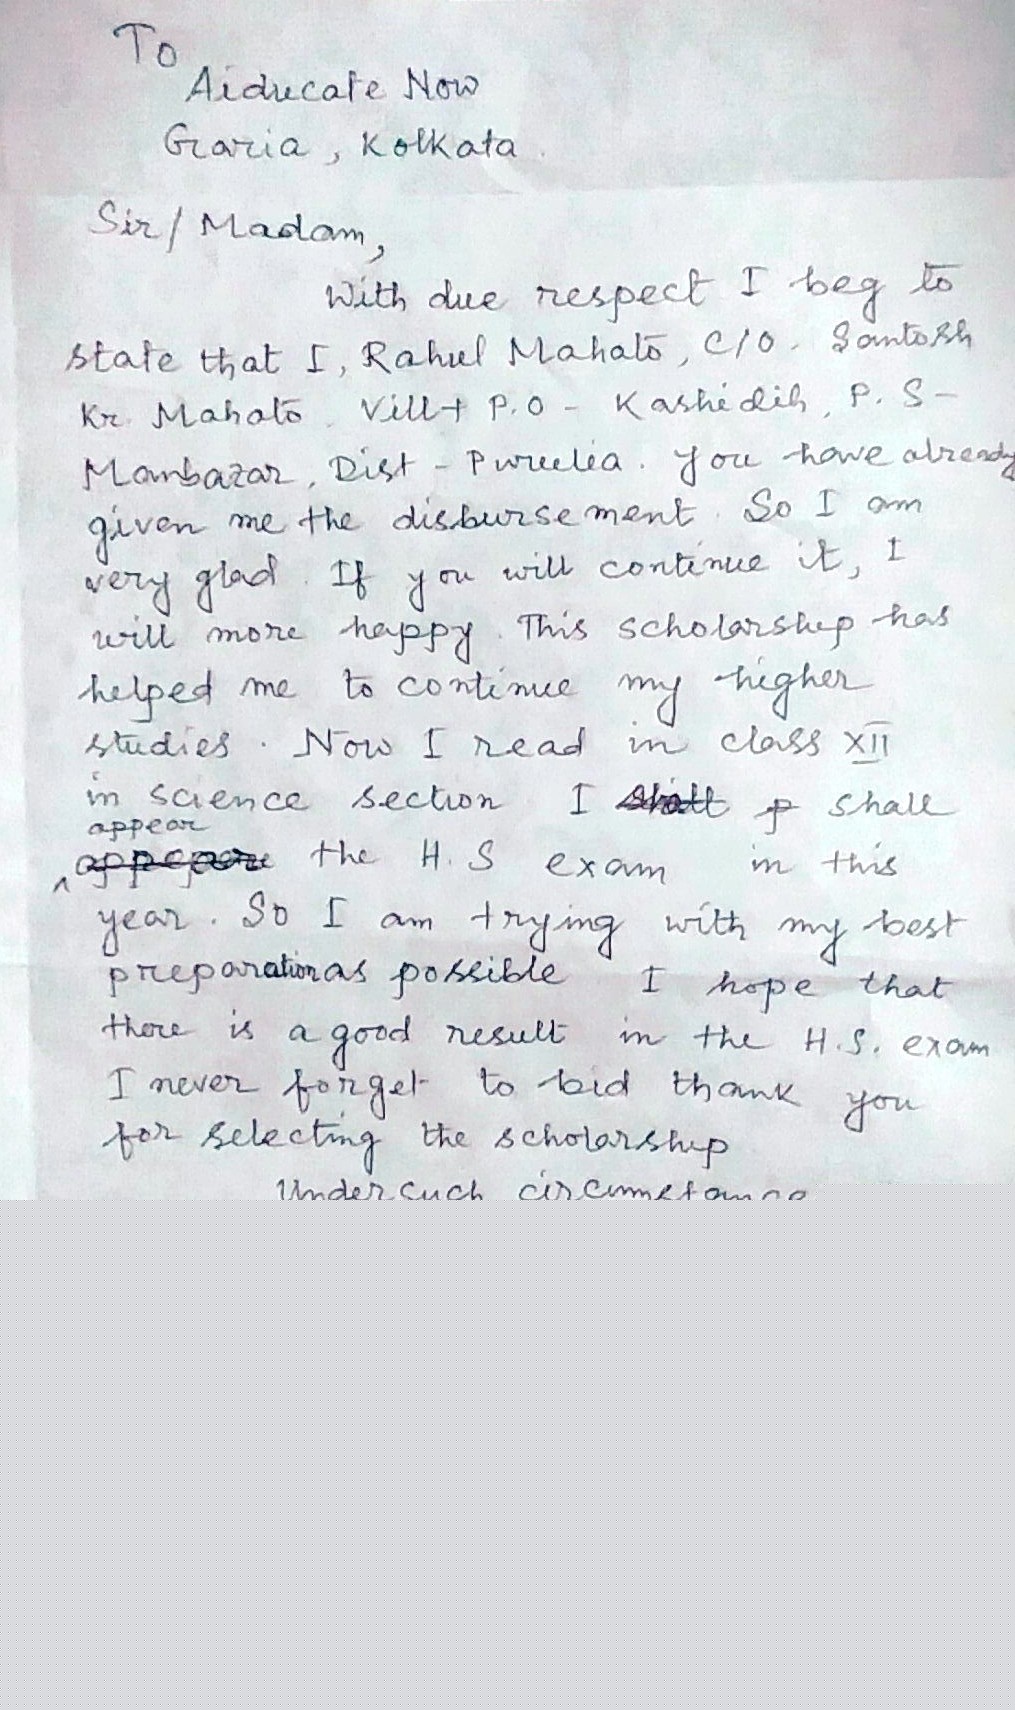 To
Aiducate Now
Garia, Kolkata.
Sir/Madam,
With due respect I beg to
state that I, Rahul Mahato, C/O. Santosh
Kr. Mahato. Vill+ P.O - Kashidih, P. S -
Manbazar, Dist - Purulia. You have already
given me the disbursement. So I am
very glad. If you will continue it, I
will more happy. This scholarship has
helped me to continue my higher
studies. Now I read in class XII
in science section I shall shall
appear
the H.S exam in this
year. So I am trying with my best
preparation as possible I hope that
there is a good result in the H.S. exam
I never forget to bid thank you
for selecting the scholarship
Under such circumstance